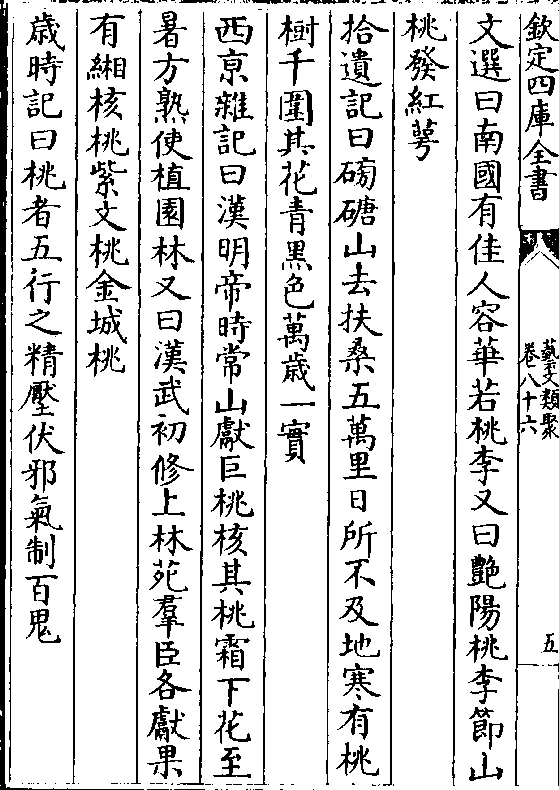 欽定四庫全書
藝文類聚
卷八十六
五
文選曰南國有佳人容華若桃李又曰艷陽桃李節山
桃發紅萼
拾遺記曰磅磄山去扶桑五萬里日所不及地寒有桃
樹千圍其花青黑色萬歲一實
西京雜記曰漢明帝時常山獻巨桃核其桃霜下花至
暑方熟使植園林又曰漢武初修上林苑羣臣各獻果
有緗核桃紫文桃金城桃
歲時記曰桃者五行之精壓伏邪氣制百鬼